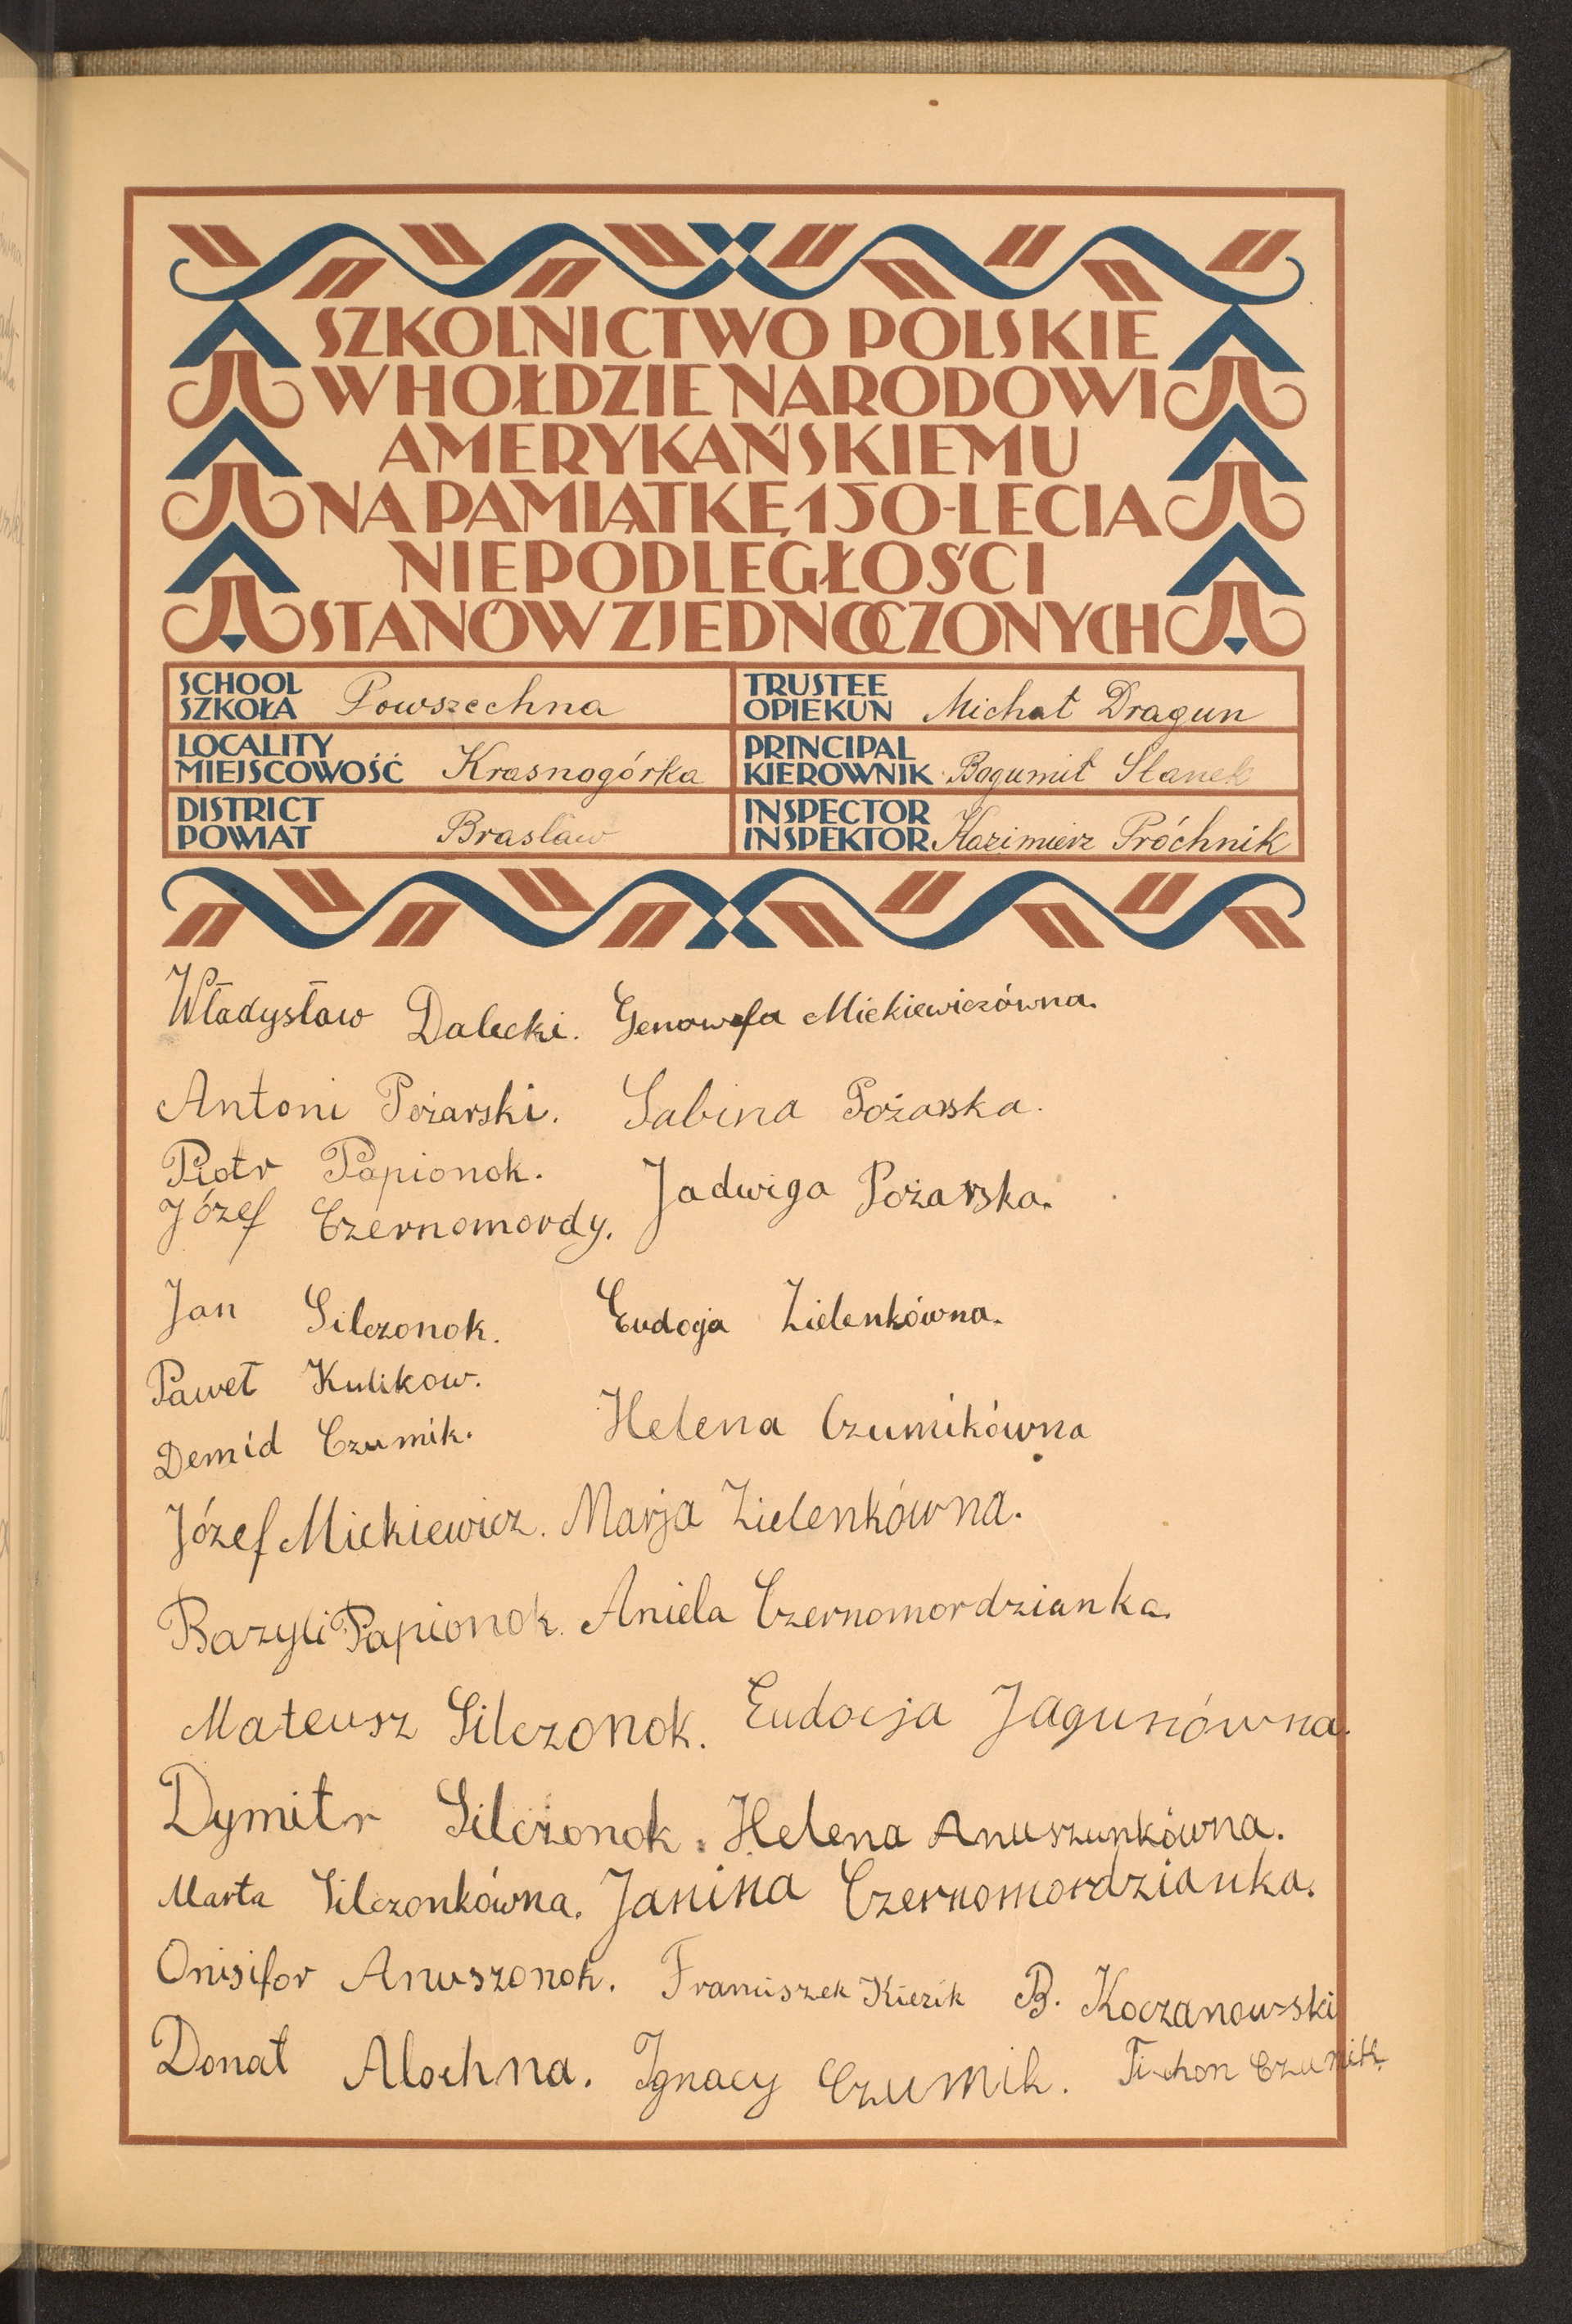 SZKOLNICTWO POLSKIE
W HOŁDZIE NARODOWI
AMERYKAŃSKIEMU
NA PAMIĄTKĘ 150-LECIA
NIEPODLEGŁOŚCI
STANÓW ZJEDNOCZONYCH
SCHOOL
SZKOŁA Powszechna
TRUSTEE
OPIEKUN Michał Dragun
LOCALITY
MIEJSCOWOŚĆ Krasnogórka
PRINCIPAL
KIEROWNIK Bogumił Stanek
DISTRICT
POWIAT Brasław
INSPECTOR
INSPEKTOR Kazimierz Próchnik
Władysław Dalecki. Genowefa Mickiewiczówna.
Antoni Pożarski. Sabina Pożarska.
Piotr Papionok.
Józef Czernomordy. Jadwiga Pożarska.
Jan Silczonok. Eudocja Zielenkówna.
Paweł Kulikow.
Demid Czumik. Helena Czumikówna
Józef Mickiewicz. Marja Zielenkówna.
Bazyli Papionok. Aniela Czernomordzianka.
Mateusz Silczonok. Eudocja Jagunówna.
Dymitr Silczonok. Helena Anuszunkówna.
Marta Silczonkówna. Janina Czernomordzianka.
Onisifor Anuszonok. Franciszek Kiezik B. Koczanowski
Donat Alochna. Ignacy Czumik. Tichon Czumik.